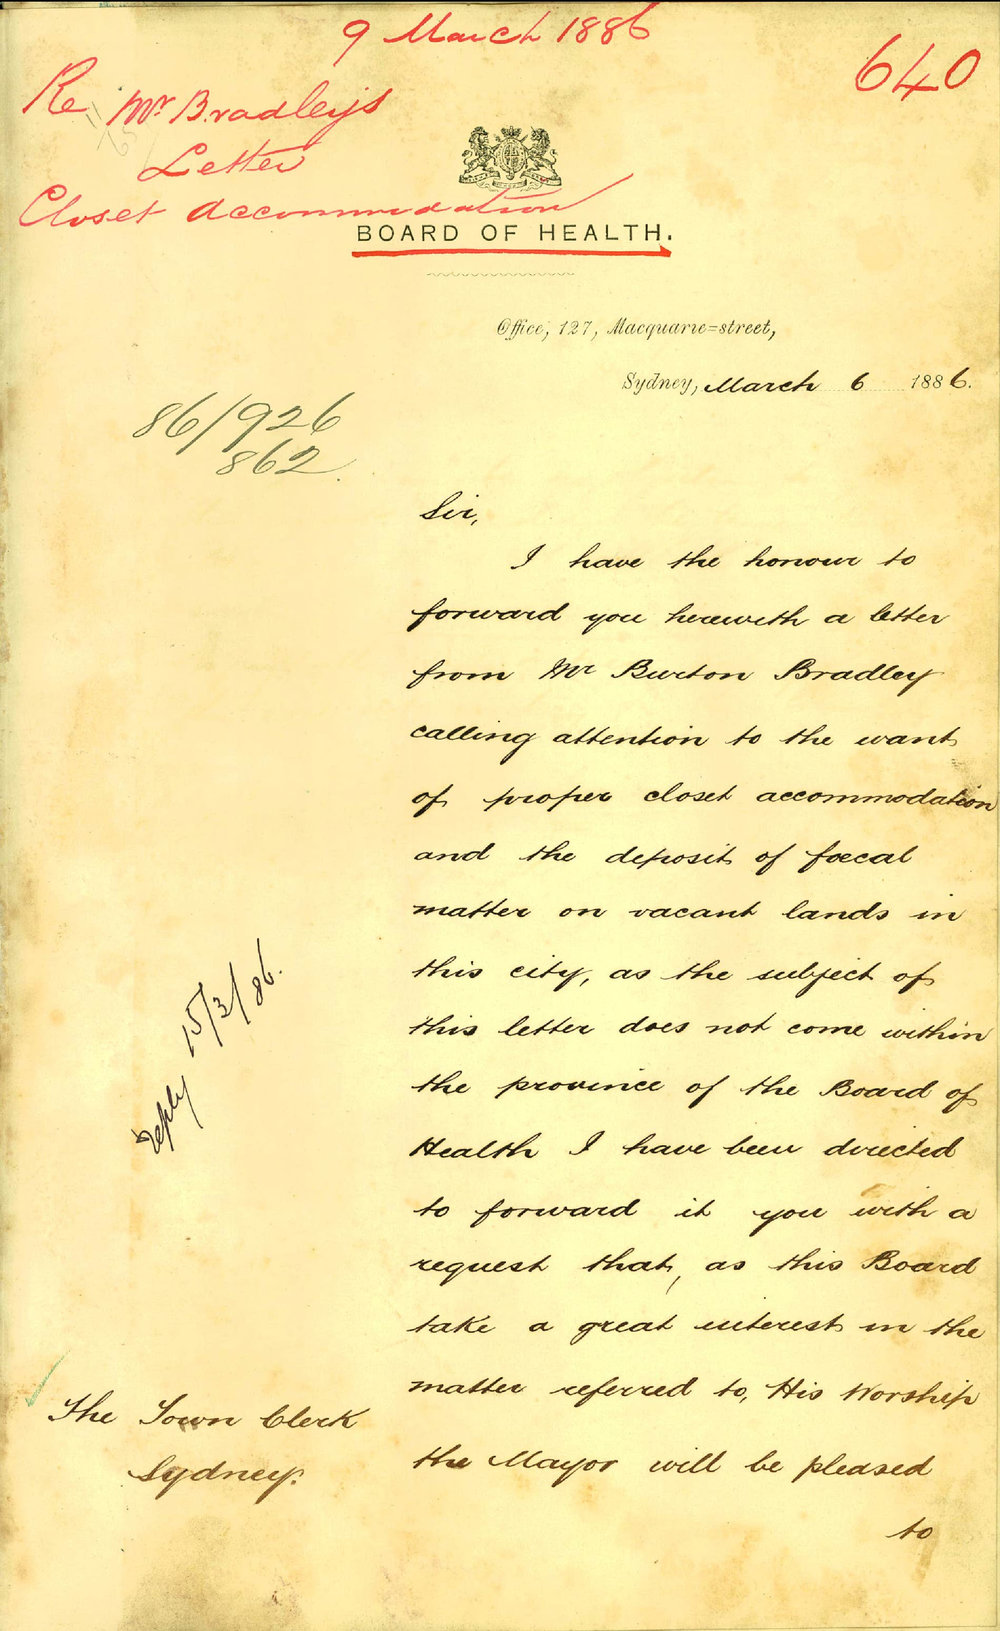 9 March 1886
640
Re Mr Bradley's
Letter
Closet Accommodation
BOARD OF HEALTH.
Office, 127, Macquarie=street,
Sydney, March 6 1886.
86/926
862.
Sir,
I have the honour to
forward you herewith a letter
from Mr Burton Bradley
calling attention to the want
of proper closet accommodation
and the deposit of fœcal
matter on vacant lands in
this city, as the subject of
this letter does not come within
the province of the Board of
Health I have been directed
to forward it you with a
request that, as this Board
take a great interest in the
matter referred to, His Worship
the Mayor will be pleased
to
reply 15/3/86.
The Town Clerk
Sydney.